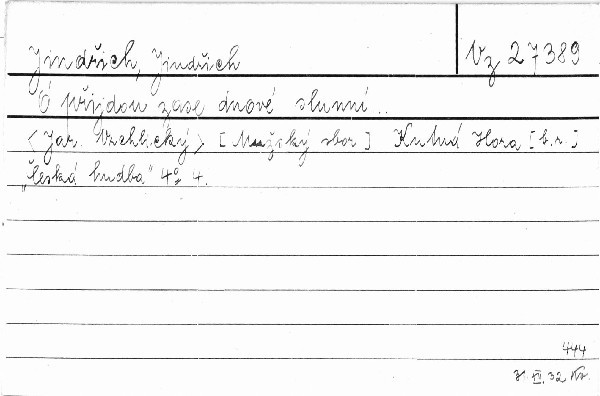 Jindřich, Jindřich
Vz 27389
Ó přijdou zase dnové slunní..
<Jar. Vrchlický> [Mužský sbor] Kutná Hora [b.r.]
„Česká hudba" 4° 4.
444
32 Kr.